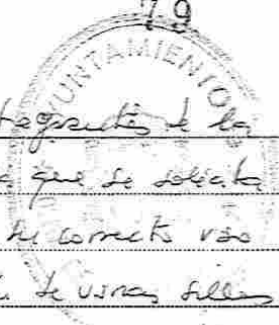 79
AYUNTAMIENTO
integrantes de la
que se solicita
su correcto uso
de unas sillas